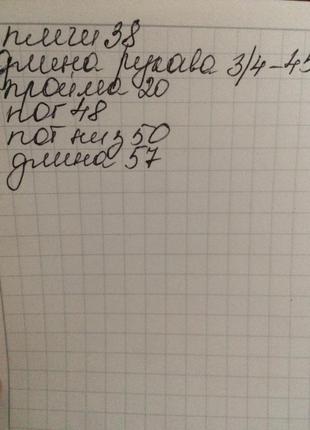 плечи 38
длина рукава 3/4-45
пройма 20
пог 48
пот низ 50
длина 57